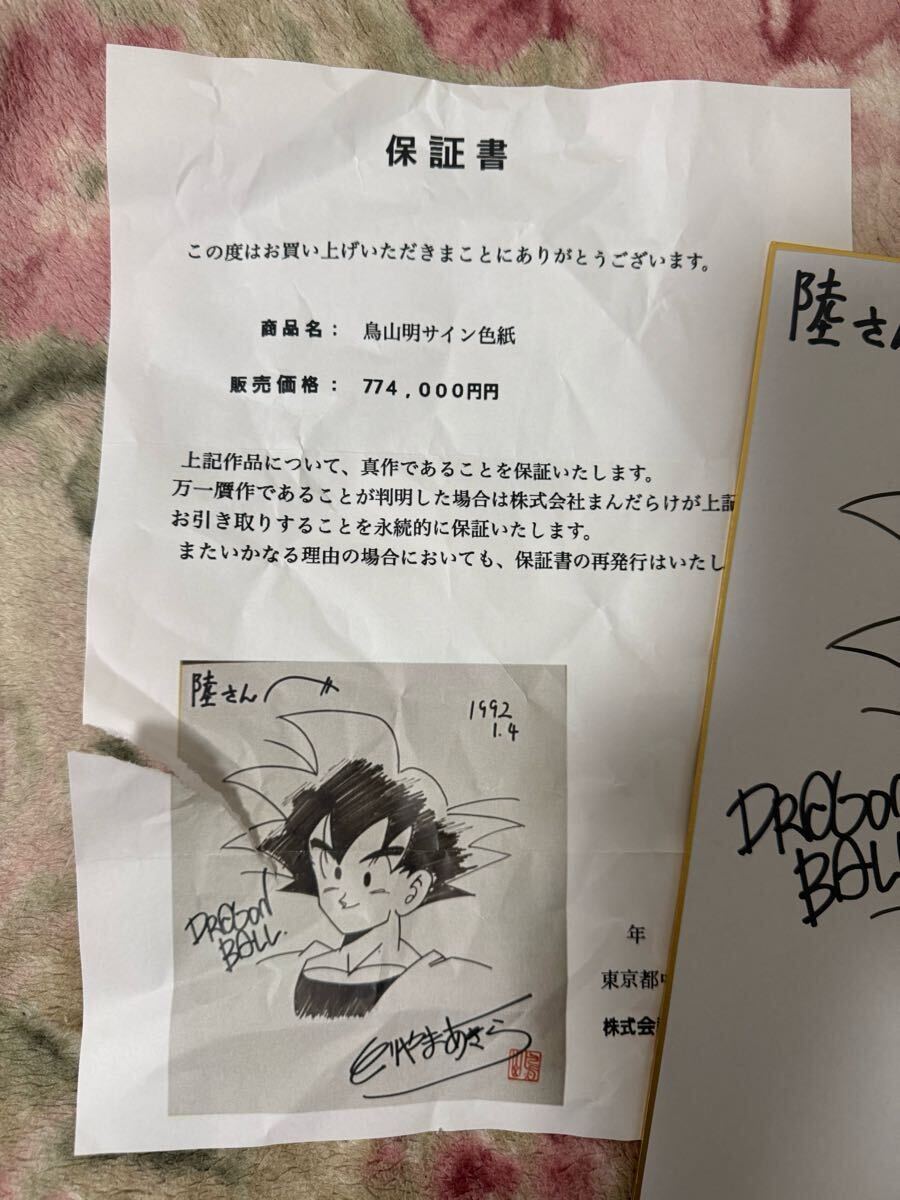 保証書
この度はお買い上げいただきまことにありがとうございます。
商品名： 鳥山明サイン色紙
販売価格： 774,000円円
上記作品について、真作であることを保証いたします。
万一贋作であることが判明した場合は株式会社まんだらけが上記
お引き取りすることを永続的に保証いたします。
またいかなる理由の場合においても、保証書の再発行はいたし
陸さん
1992
1.4
DRAGON
BALL.
とりやまあきら
年
東京都中
株式会
陸さん
DRAGON
BALL